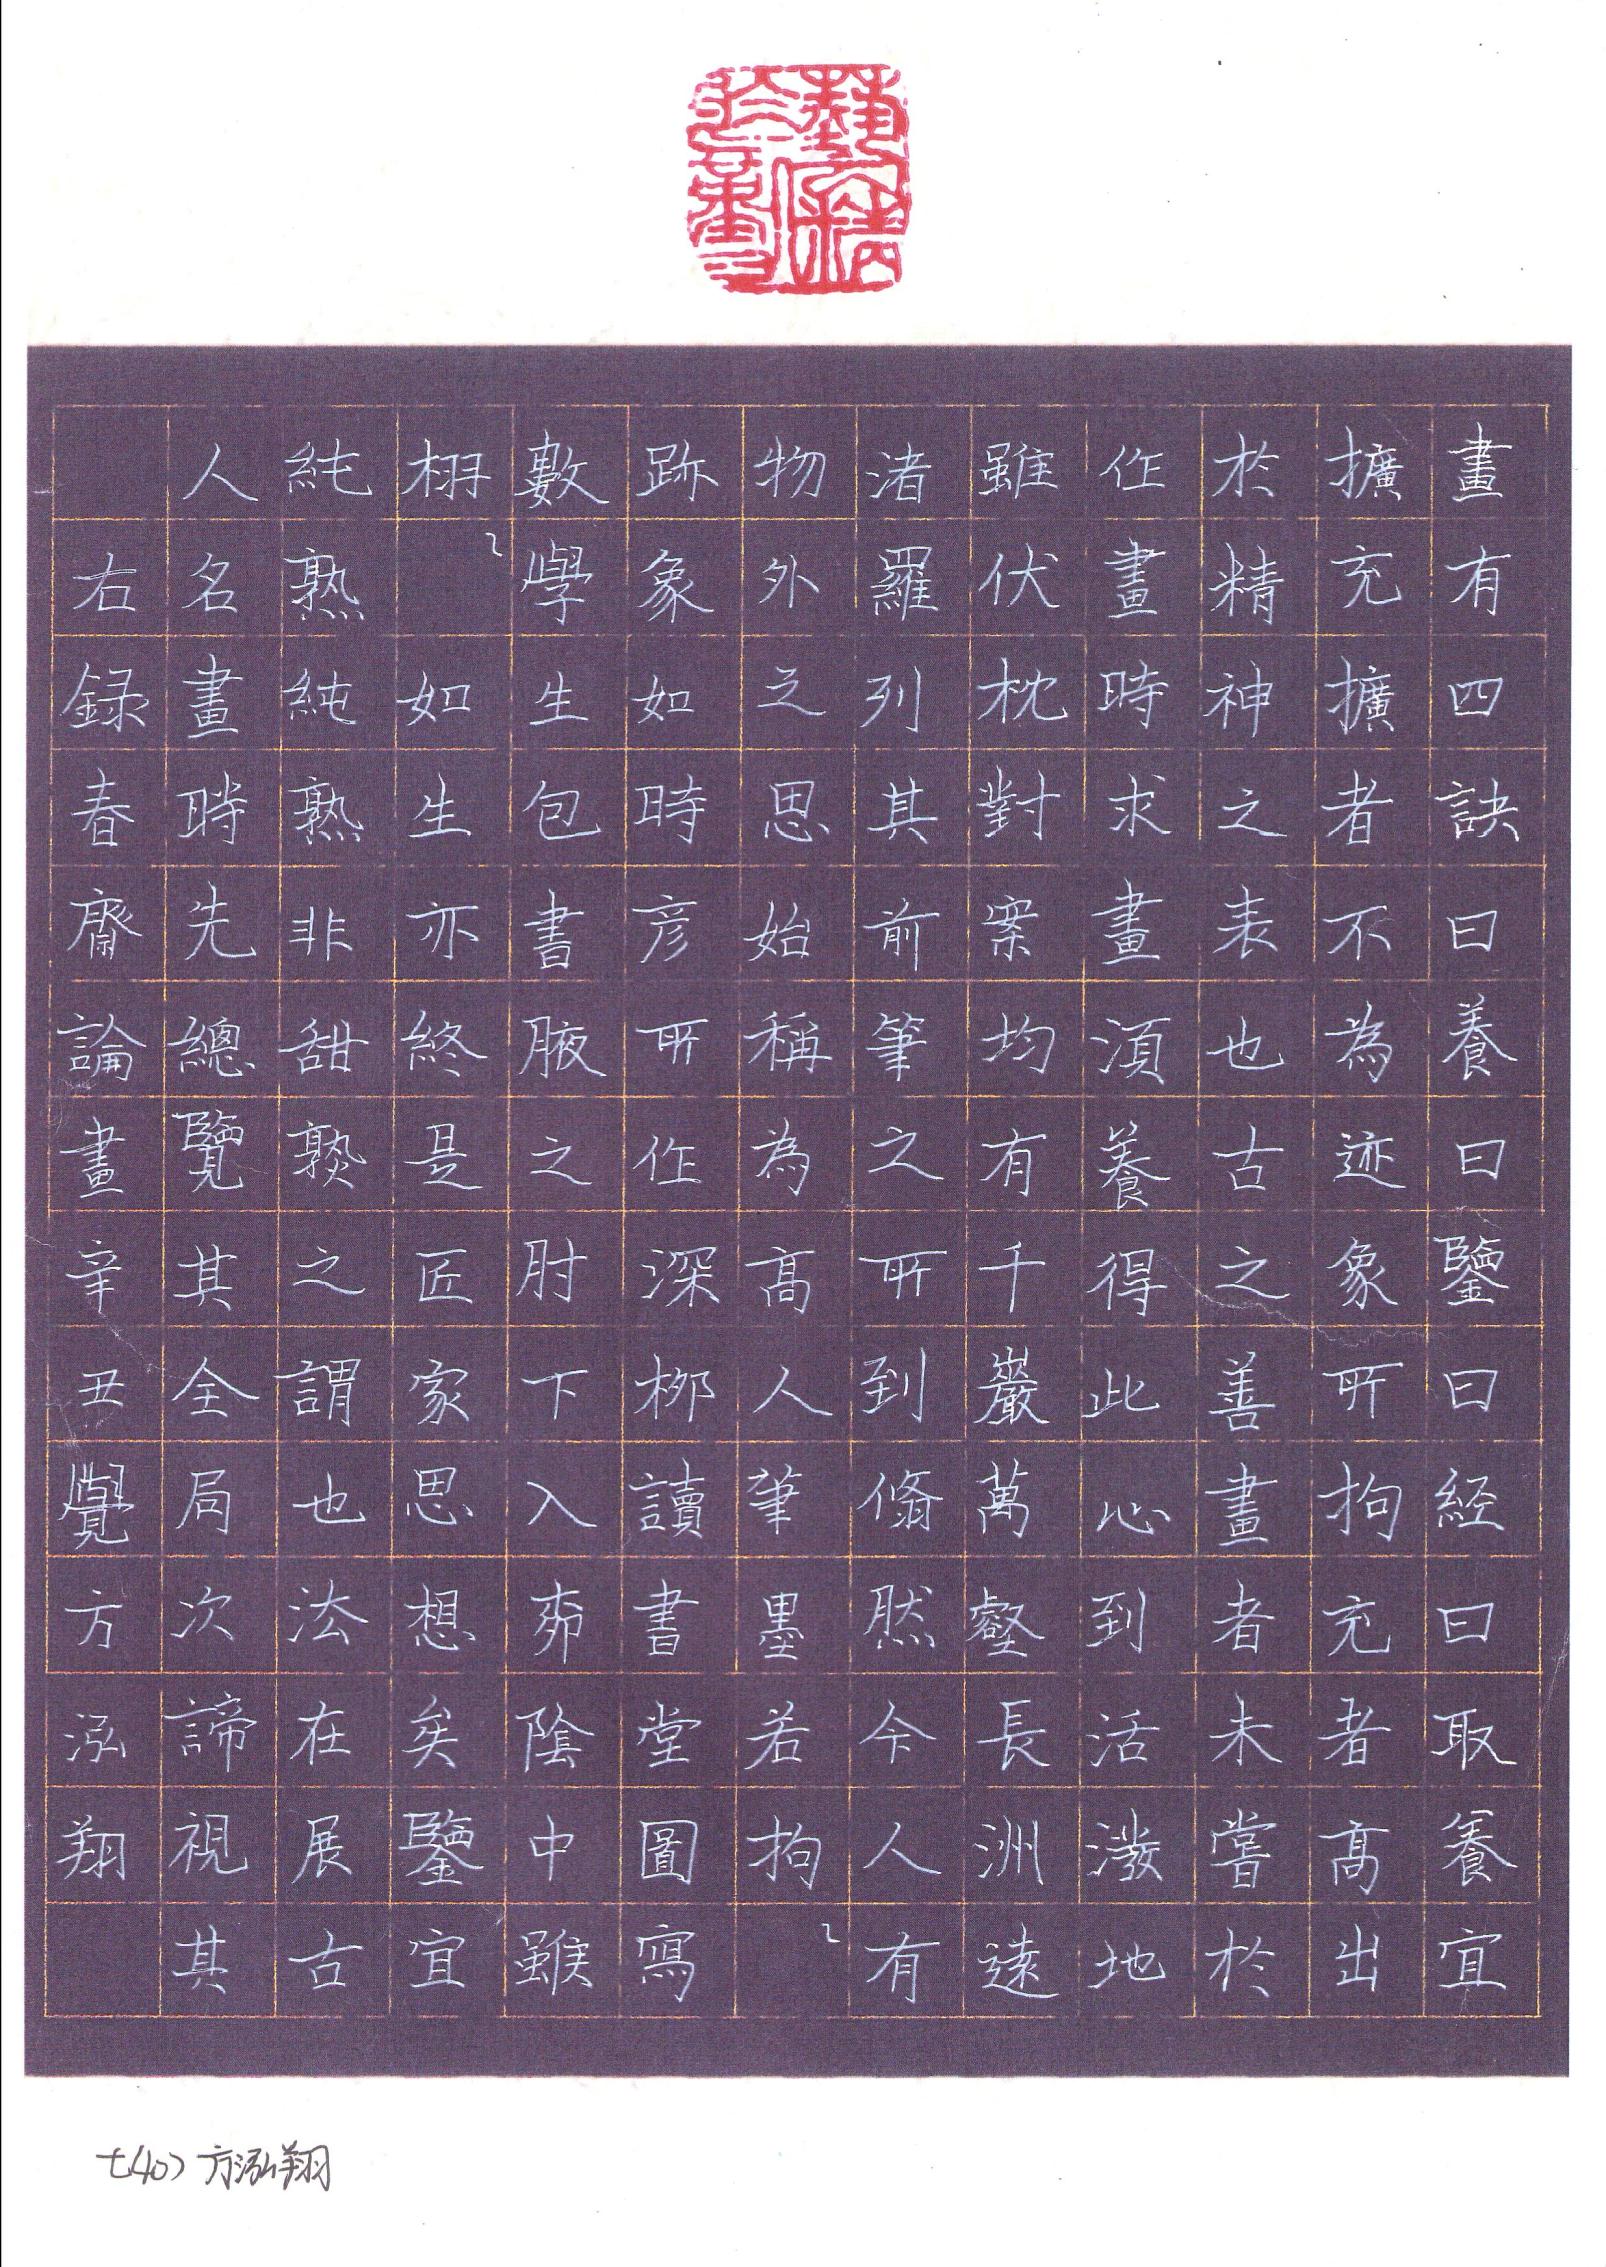 藝精於勤
畫有四訣曰養曰鑒曰経曰取養宜
擴充擴者不為迹象所拘充者高出
於精神之表也古之善畫者未嘗於
作畫時求畫湏養得此心到活潑地
雖伏枕對案均有千巖萬壑長洲遠
渚羅列其前筆之所到翛然今人有
物外之思始稱為高人筆墨若拘〻
跡象如時彦所作深栁讀書堂圖寫
數學生包書腋之肘下入茆陰中雖
栩〻如生亦終是匠家思想矣鑒宜
純熟純熟非甜熟之謂也法在展古
人名畫時先總覽其全局次諦視其
右録春齋論畫辛丑覺方泓翔
七(40)方泓翔